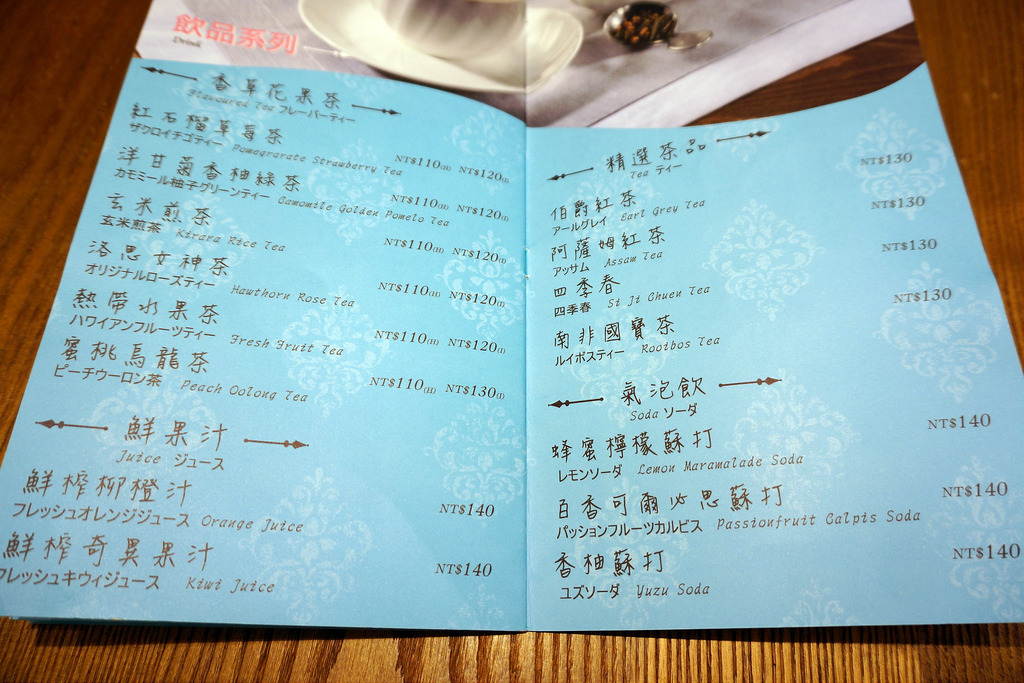 飲品系列
Drink
香草花果茶
Flavoured Tea フレーバーティー
紅石榴草莓茶
ザクロイチゴティー Pomegrarate Strawberry Tea NT$110(H) NT$120(I)
洋甘菊香柚綠茶
カモミール柚子グリーンティー Camomile Golden Pomelo Tea NT$110(H) NT$120(I)
玄米煎茶
玄米煎茶 Kirara Rice Tea NT$110(H) NT$120(I)
洛思女神茶
オリジナルローズティー Hawthorn Rose Tea NT$110(H) NT$120(I)
熱帶水果茶
ハワイアンフルーツティー Fresh Fruit Tea NT$110(H) NT$120(I)
蜜桃烏龍茶
ピーチウーロン茶 Peach Oolong Tea NT$110(H) NT$130(I)
鮮果汁
Juice ジュース
鮮榨柳橙汁
フレッシュオレンジジュース Orange Juice NT$140
鮮榨奇異果汁
フレッシュキウィジュース Kiwi Juice NT$140
精選茶品
Tea ティー
伯爵紅茶 NT$130
アールグレイ Earl Grey Tea
阿薩姆紅茶 NT$130
アッサム Assam Tea
四季春 NT$130
四季春 Si Ji Chuen Tea
南非國寶茶 NT$130
ルイボスティー Rooibos Tea
氣泡飲
Soda ソーダ
蜂蜜檸檬蘇打 NT$140
レモンソーダ Lemon Maramalade Soda
百香可爾必思蘇打 NT$140
パッションフルーツカルピス Passionfruit Calpis Soda
香柚蘇打 NT$140
ユズソーダ Yuzu Soda